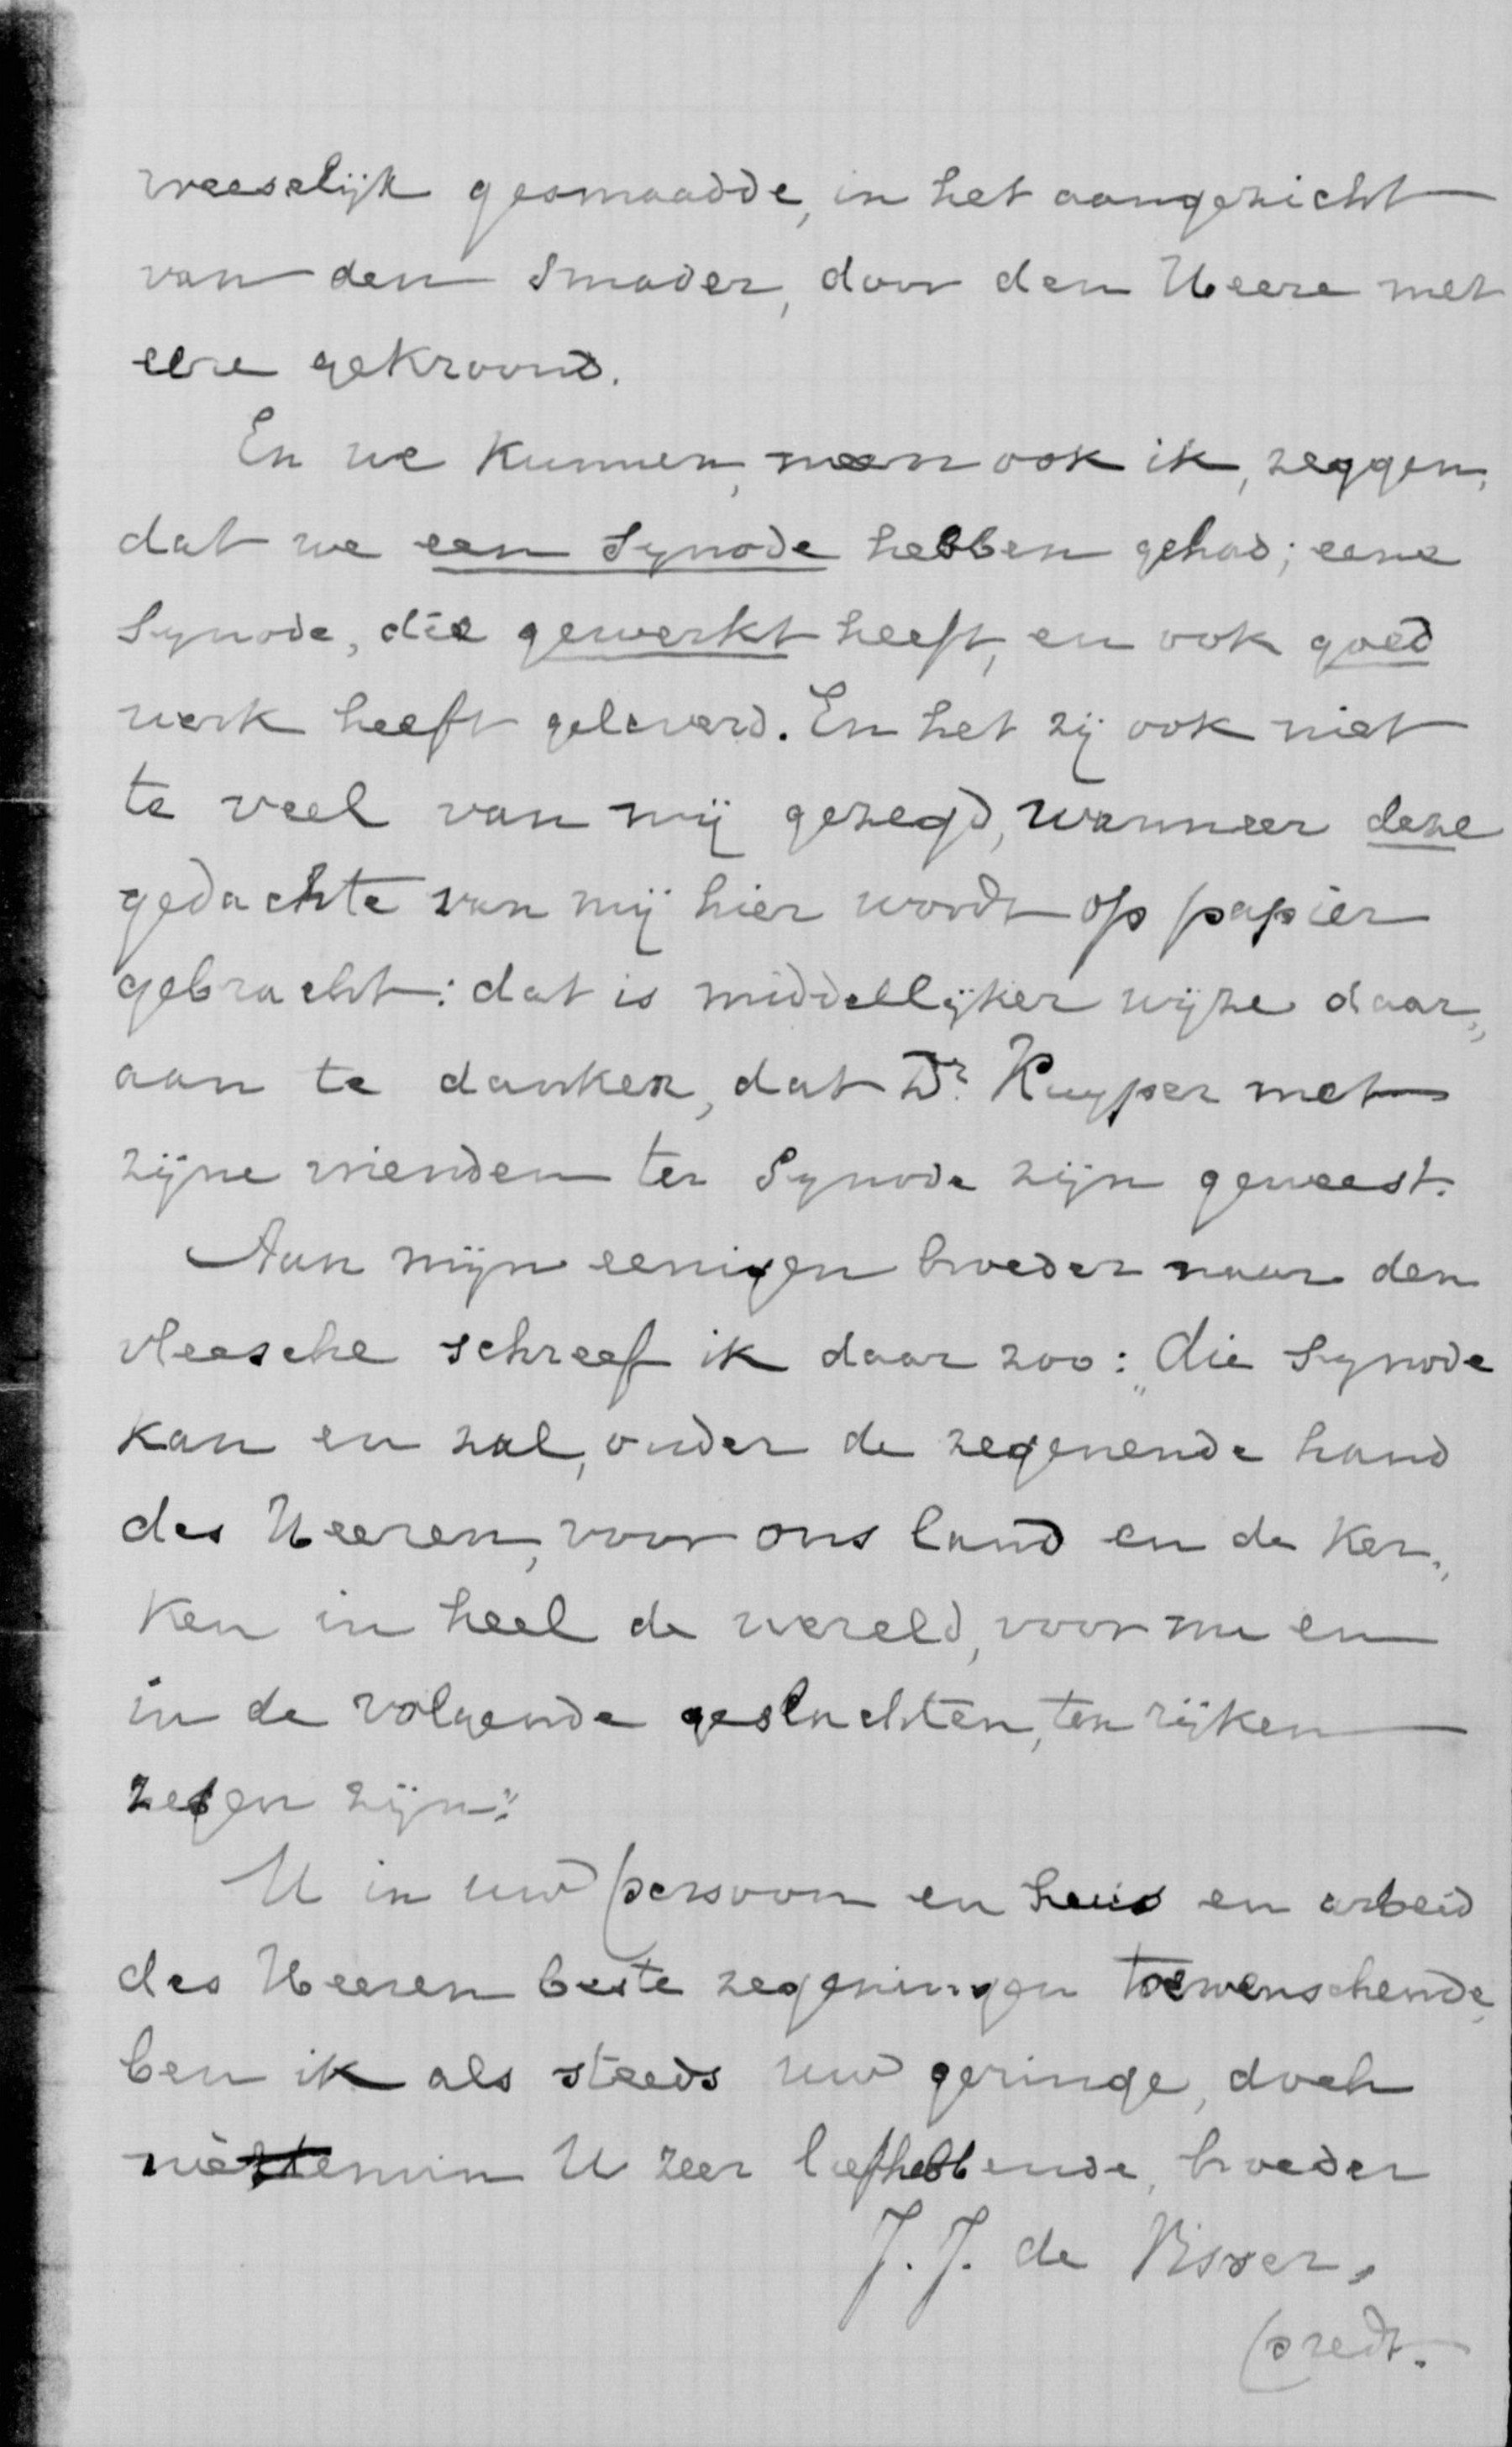 vreeselijk gesmaadde, in het aangezicht
van den Smader, door den Heere met
eere gekroond.
En we kunnen, meen ook ik, zeggen,
dat we een Synode hebben gehad; eene
Synode, die gewerkt heeft, en ook goed
werk heeft geleverd. En het zij ook niet
te veel van mij gezegd, wanneer deze
gedachte van mij hier wordt op papier
gebracht: dat is middellijker wijze daar„
aan te danken, dat Dr. Kuyper met
zijne vrienden ter Synode zijn geweest.
Aan mijn eenigen broeder naar den
vleesche schreef ik daar zoo: „Die Synode
kan en zal, onder de zegenende hand
des Heeren, voor ons land en de ker„
ken in heel de wereld, voor nu en
in de volgende geslachten, ten rijken
zegen zijn."
U in uw persoon en huis en arbeid
des Heeren beste zegeningen toewenschende,
ben ik als steeds uw geringe, doch
niettemin U zeer liefhebbende, broeder
J. J. de Visser,
predt.